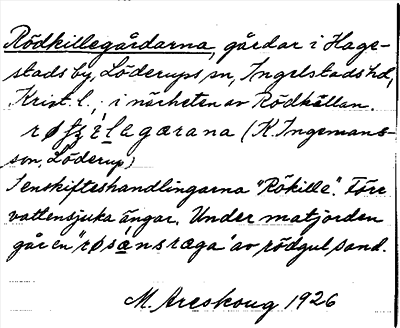 Rödkillegårdarna, gårdar i Hage-
stads by, Löderups sn, Ingelstads hd,
Krist. l., i närheten av Rödkällan.
røʃʒílagærana (K. Ingemans-
son, Löderup)
I enskifteshandlingarna "Rökille". Förr
vattensjuka ängar. Under matjorden
går en "røsánsræga" av rödgul sand.
M. Areskoug 1926